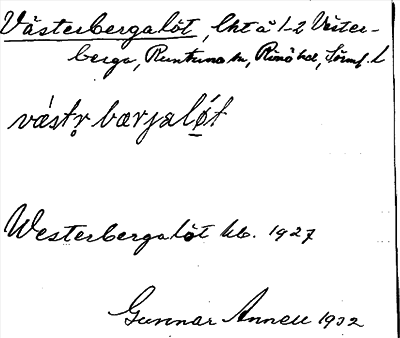 Västerbergalöt, lht å 1-2 Väster-
berga, Runtuna sn, Rönö hd, Sörml. L
västr bærjalöt
Westerbergalöt kb. 1927
Gunnar Annell 1932